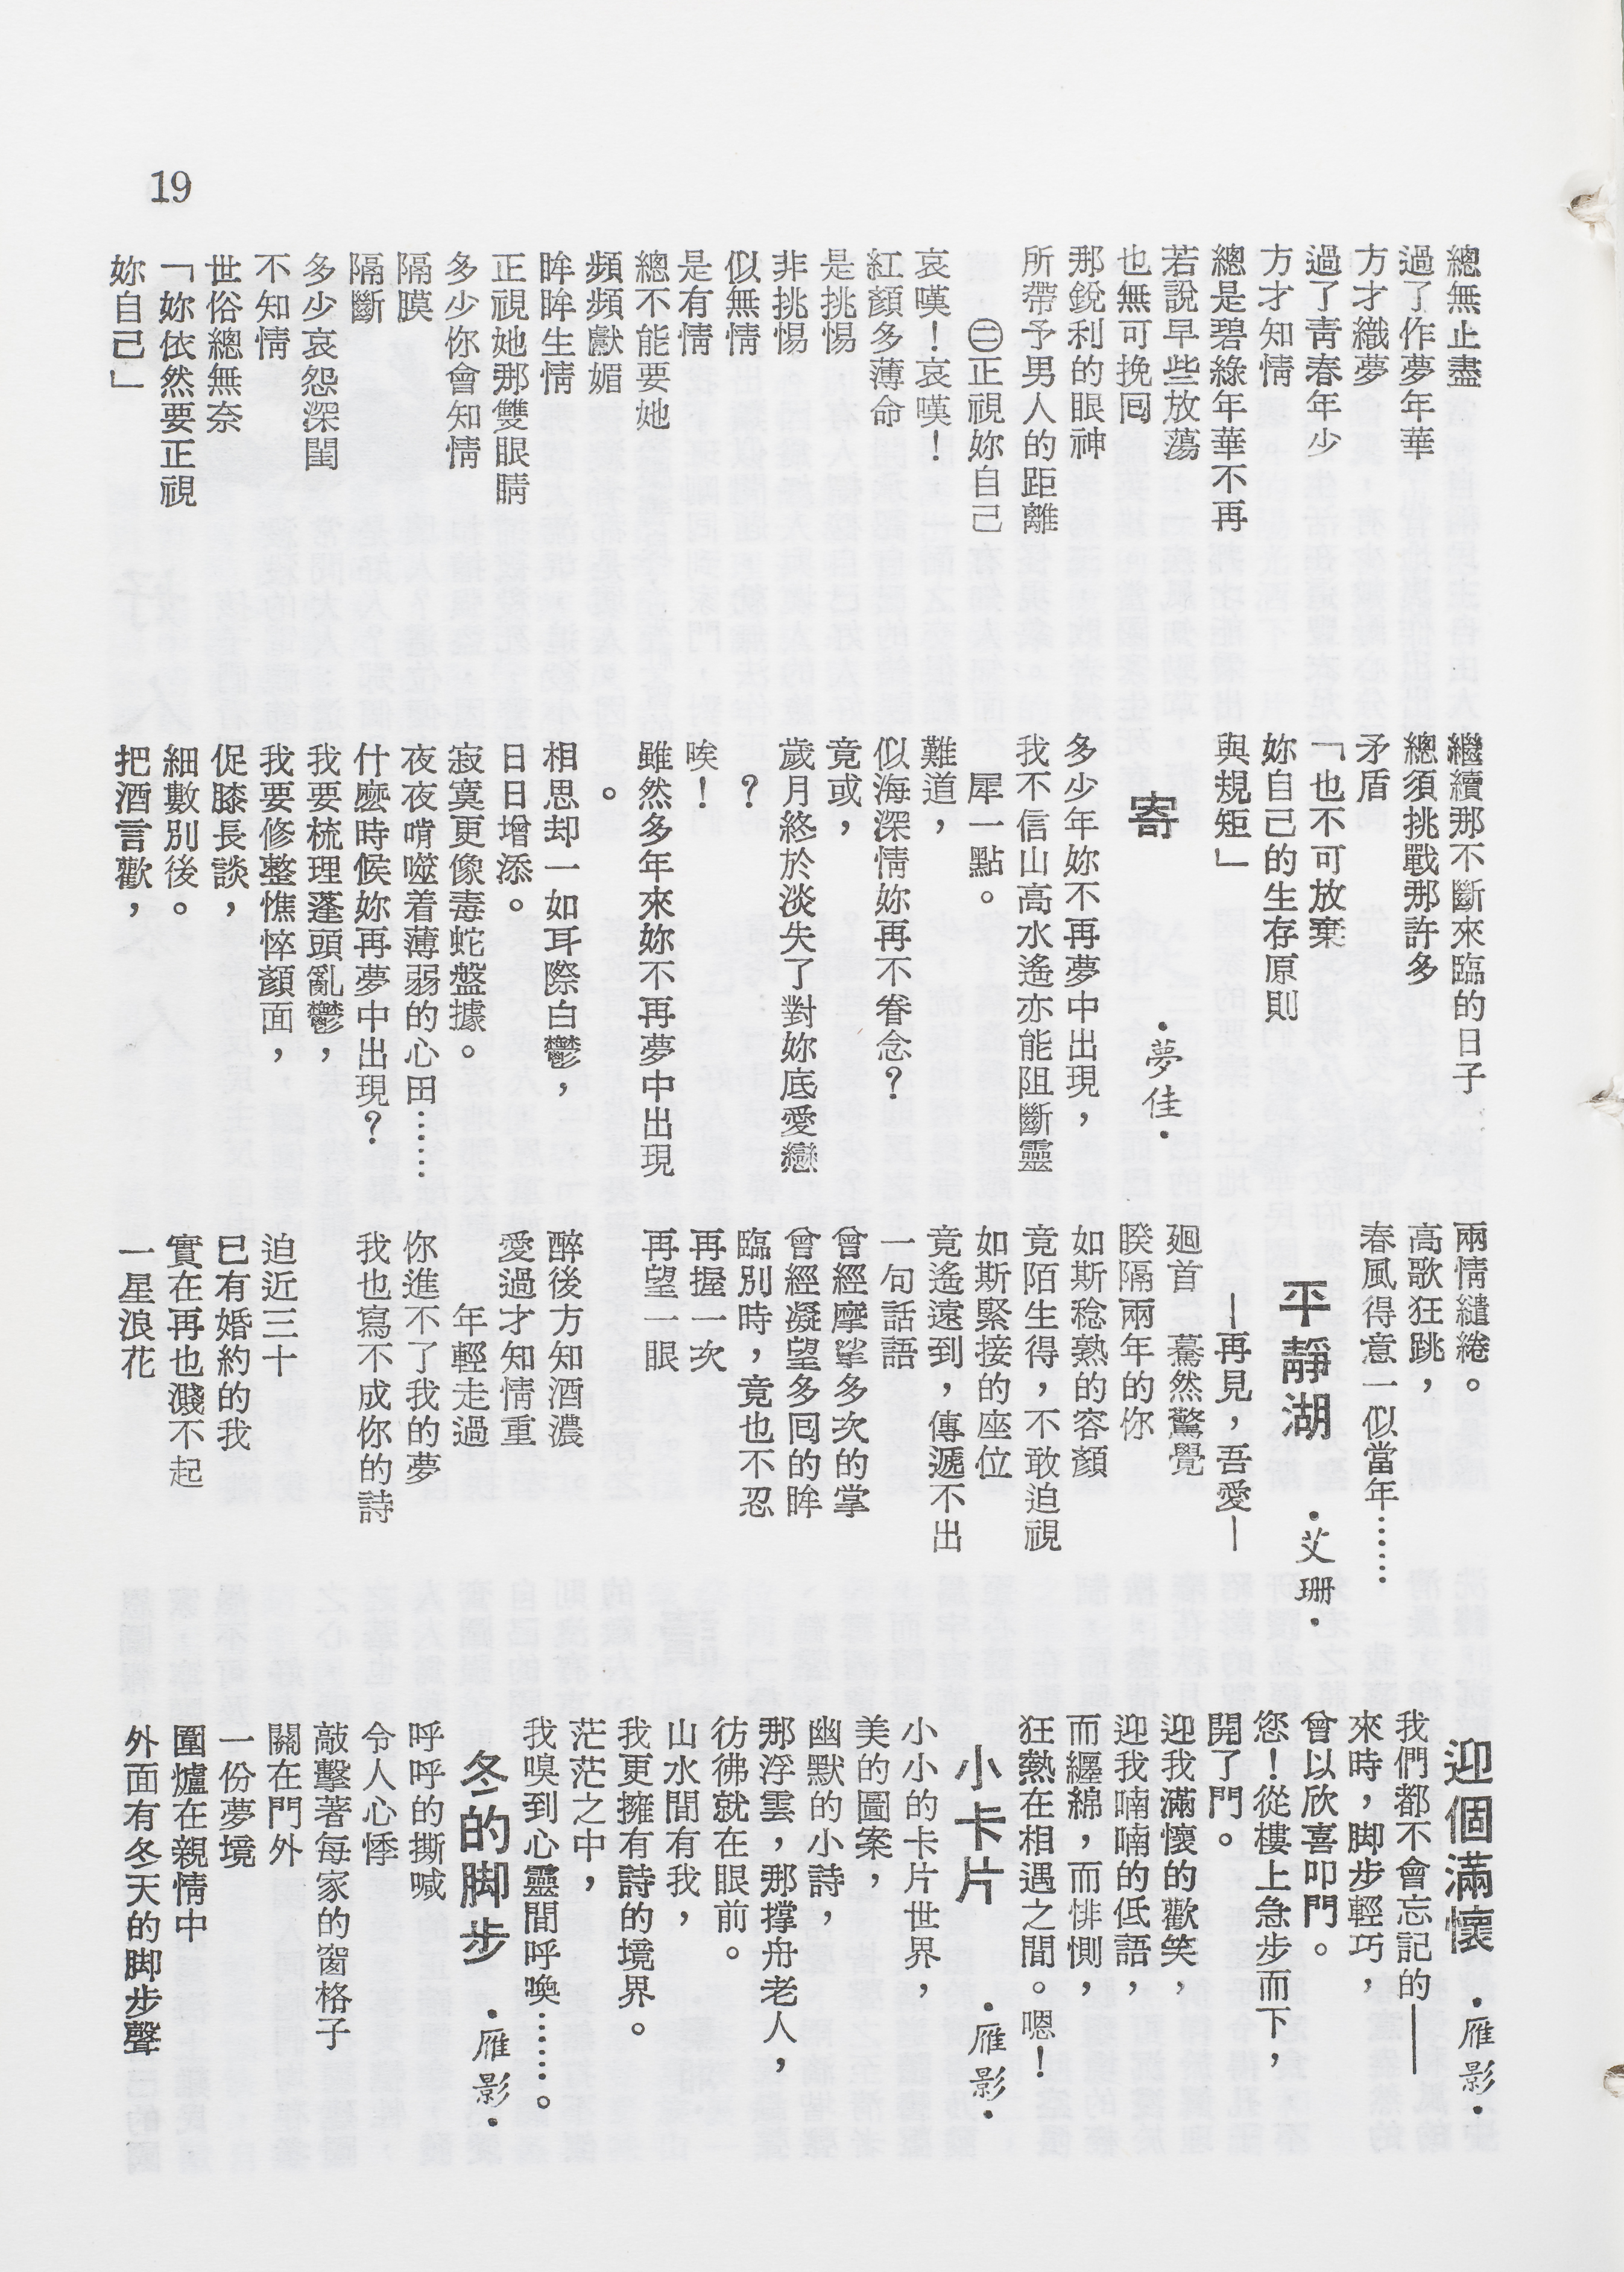 19
總無止盡
過了作夢年華
方才織夢
過了青春年少
方才知情
總是碧綠年華不再
若說早些放蕩
也無可挽囘
那銳利的眼神
所帶予男人的距離
㊁正視妳自己
哀嘆！哀嘆！
紅顏多薄命
是挑惕
非挑惕
似無情
是有情
總不能要她
頻頻獻媚
眸眸生情
正視她那雙眼睛
多少你會知情
隔膜
隔斷
多少哀怨深閨
不知情
世俗總無奈
「妳依然要正視
妳自己」
繼續那不斷來臨的日子
總須挑戰那許多
矛盾
「也不可放棄
妳自己的生存原則
與規矩」
寄
•夢佳•
多少年妳不再夢中出現，
我不信山高水遙亦能阻斷靈
犀一點。
難道，
似海深情妳再不眷念？
竟或，
歲月終於淡失了對妳底愛戀
？
唉！
雖然多年來妳不再夢中出現
。
相思却一如耳際白鬱，
日日增添。
寂寞更像毒蛇盤據。
夜夜啃噬着薄弱的心田……
什麼時候妳再夢中出現？
我要梳理蓬頭亂鬱，
我要修整憔悴顏面，
促膝長談，
細數別後。
把酒言歡，
兩情繾綣。
高歌狂跳，
春風得意一似當年……
平靜湖
•艾珊•
—再見，吾愛—
廻首　驀然驚覺
睽隔兩年的你
如斯稔熟的容顏
竟陌生得，不敢迫視
如斯緊接的座位
竟遙遠到，傳遞不出
一句話語
曾經摩挲多次的掌
曾經凝望多囘的眸
臨別時，竟也不忍
再握一次
再望一眼
醉後方知酒濃
愛過才知情重
年輕走過
你進不了我的夢
我也寫不成你的詩
迫近三十
已有婚約的我
實在再也濺不起
一星浪花
迎個滿懷
•雁影•
我們都不會忘記的——
來時，脚步輕巧，
曾以欣喜叩門。
您！從樓上急步而下，
開了門。
迎我滿懷的歡笑，
迎我喃喃的低語，
而纏綿，而悱惻，
狂熱在相遇之間。嗯！
小卡片
•雁影•
小小的卡片世界，
美的圖案，
幽默的小詩，
那浮雲，那撐舟老人，
彷彿就在眼前。
山水間有我，
我更擁有詩的境界。
茫茫之中，
我嗅到心靈間呼喚……。
冬的脚步
•雁影•
呼呼的撕喊
令人心悸
敲擊著每家的窗格子
關在門外
一份夢境
圍爐在親情中
外面有冬天的脚步聲